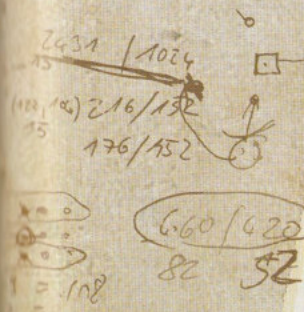 2431 / 1024
15
216/132
15
176/152
660/420
82 52
108